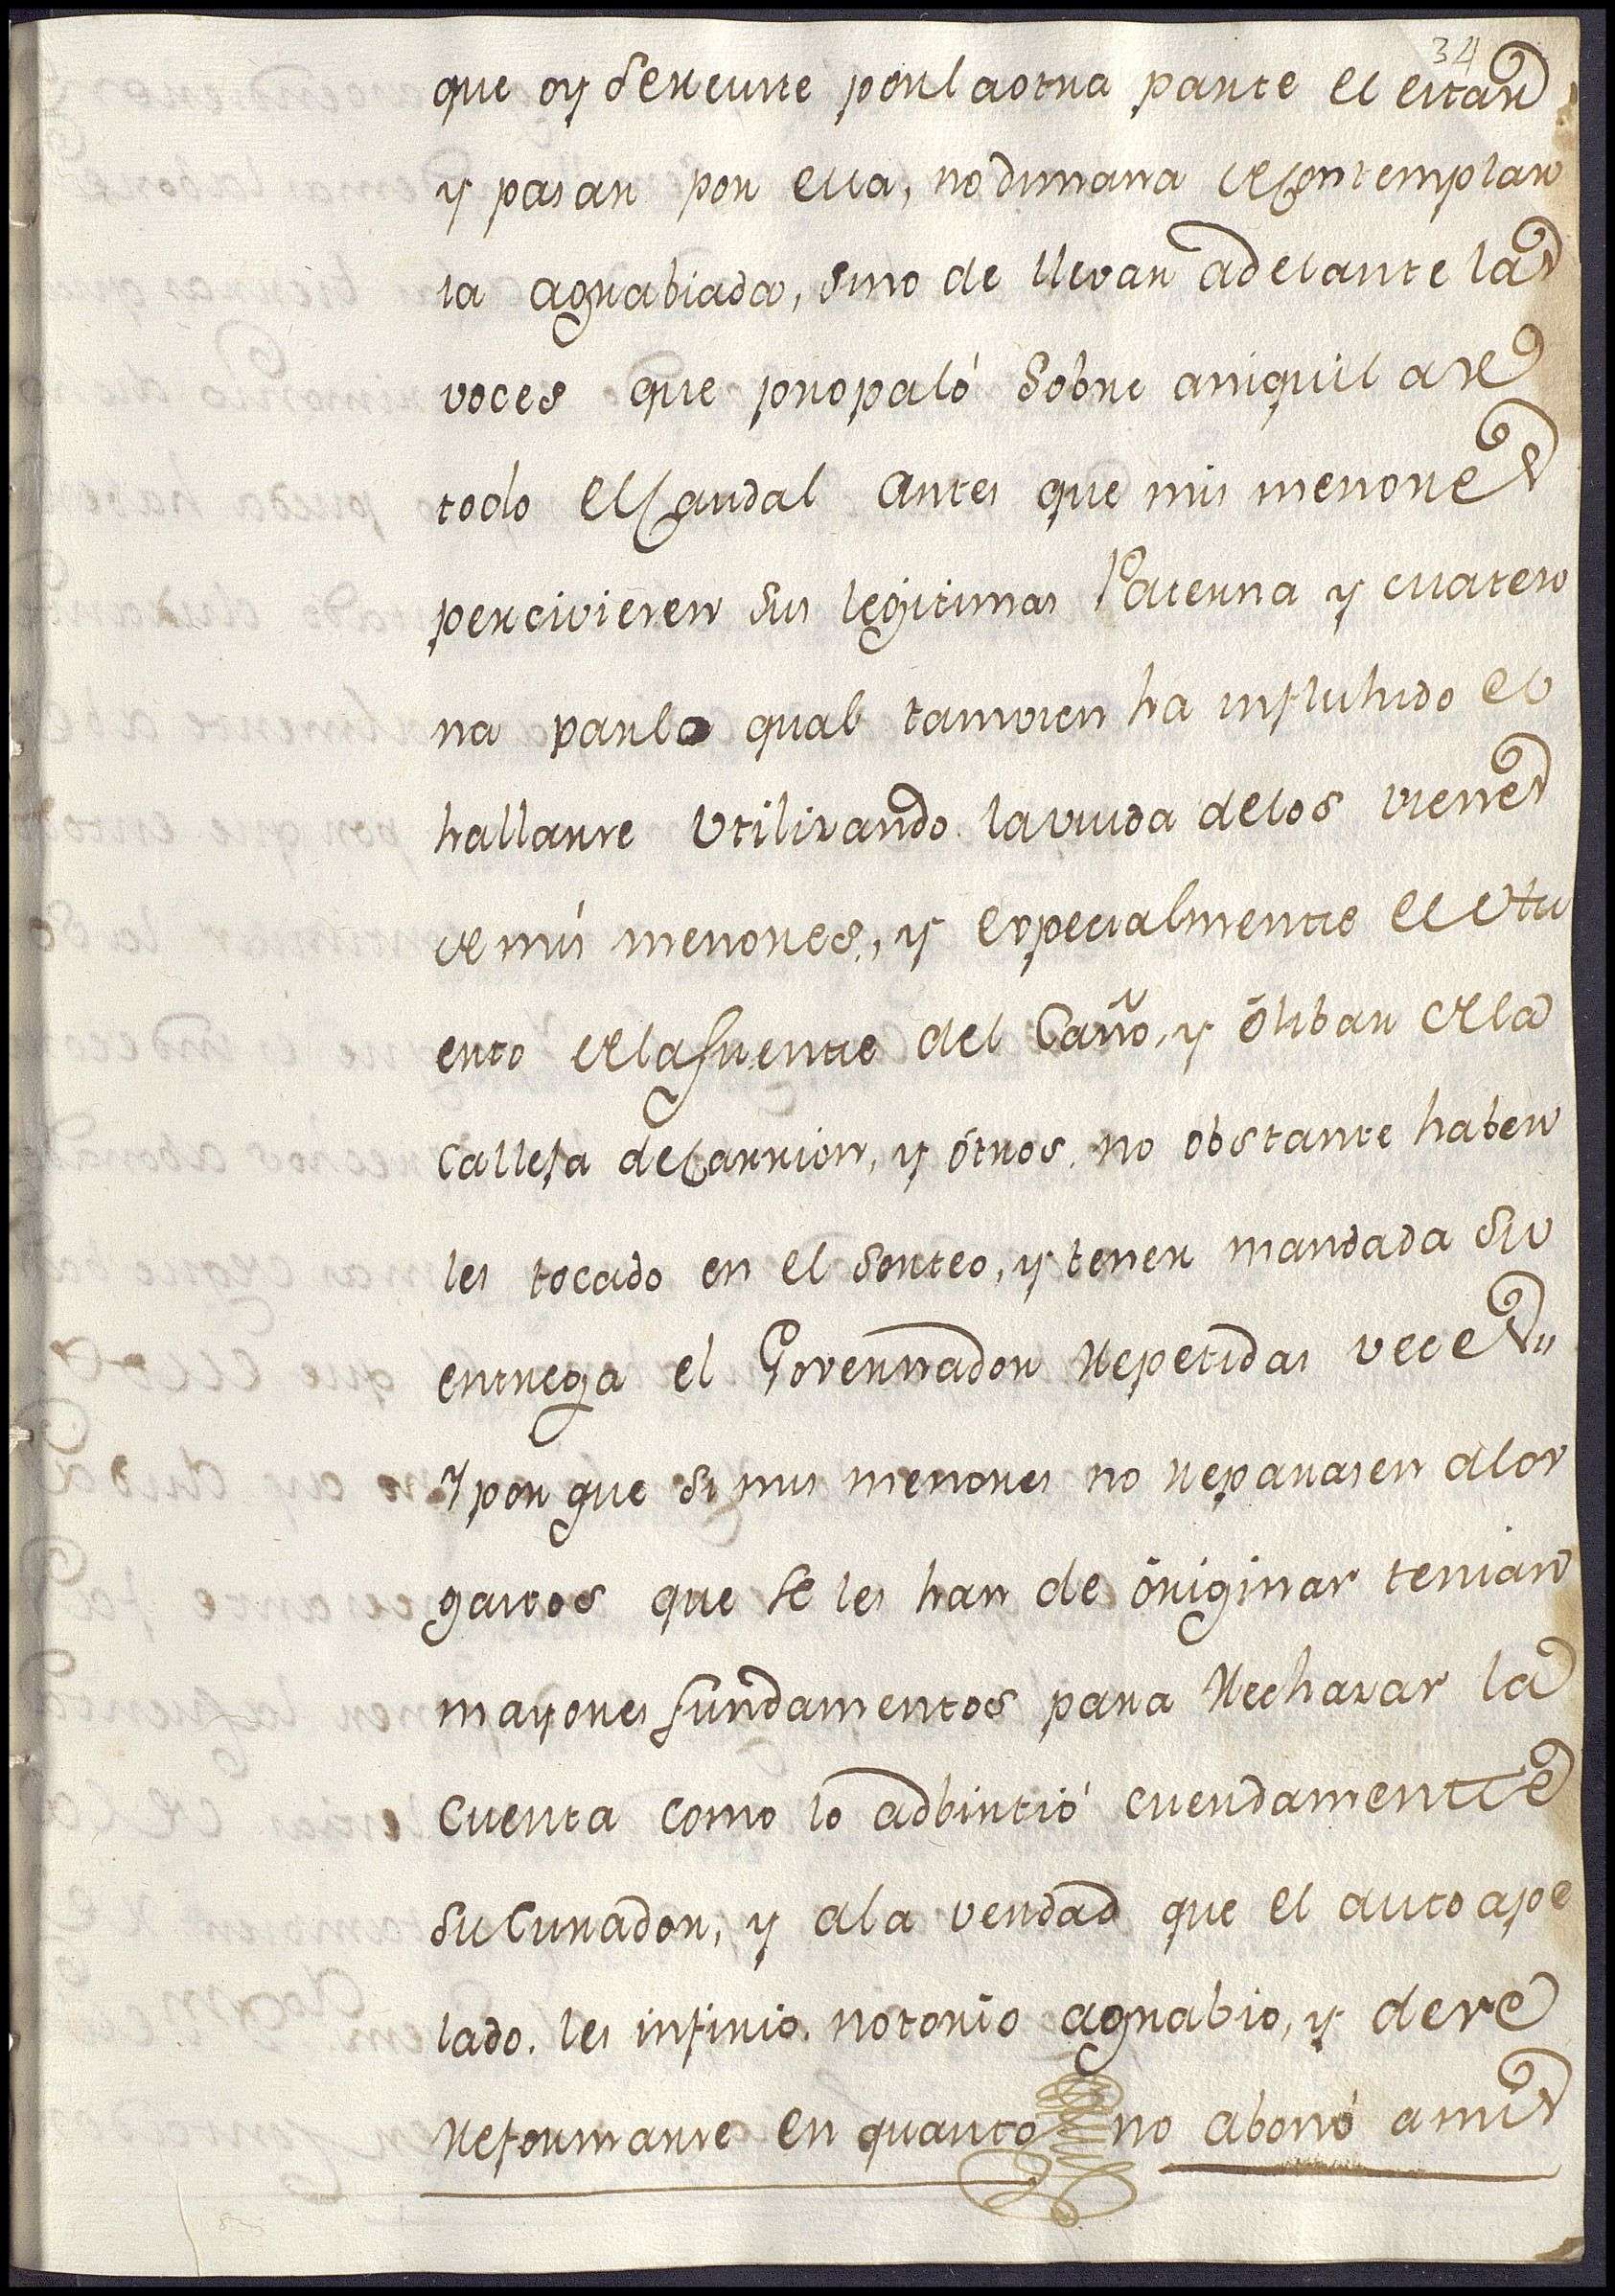 34
que oy se resiste por la otra parte el estar
y pasar por esa, no dimana de contemplar
la agrabiada, sino de llevar adelante las
voces que propaló sobre aniquilarse
todo el Caudal antes que mis menores
percivieren sus legitimas Paterna y Mater
na para lo qual tamvien ha influhido el
hallarse Utilizando la viuda de los vienes
de mis menores, y especialmente el Hu
erto de la fuente del Caño, y ólibar de la
Calleja de Carrion, y ótros, no obstante haber
les tocado en el sorteo, y tener mandada su
entrega el Governador repetidas veces,,
Y por que si mis menores no reparasen a los
gastos que se les han de óriginar tenian
mayores fundamentos para rechazar la
Cuenta como lo adbirtió cuerdamente
su Curador, y a la verdad que el auto ape
lado, les infirio notorio agrabio, y deve
reformarse en quanto no abonó a mis